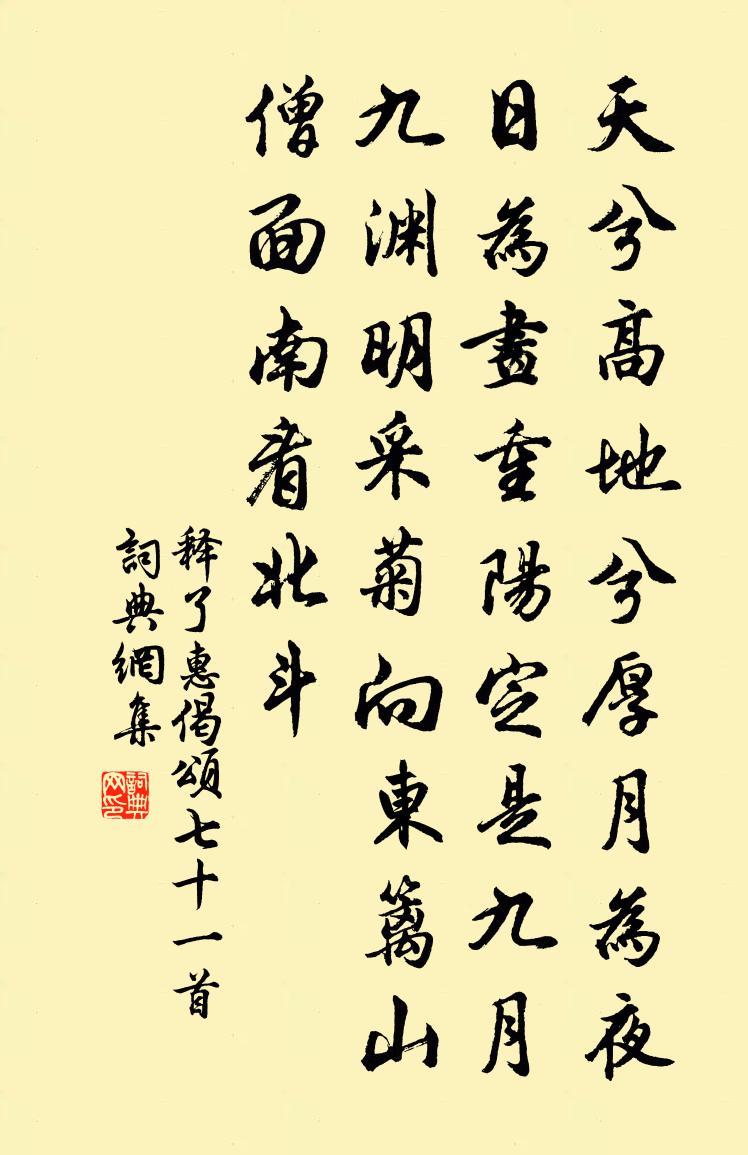 天兮高地兮厚月為夜
日為晝重陽定是九月
九渊明采菊向東籬山
僧面南看北斗
释了惠偈頌七十一首
詞典網集
詞典
网印